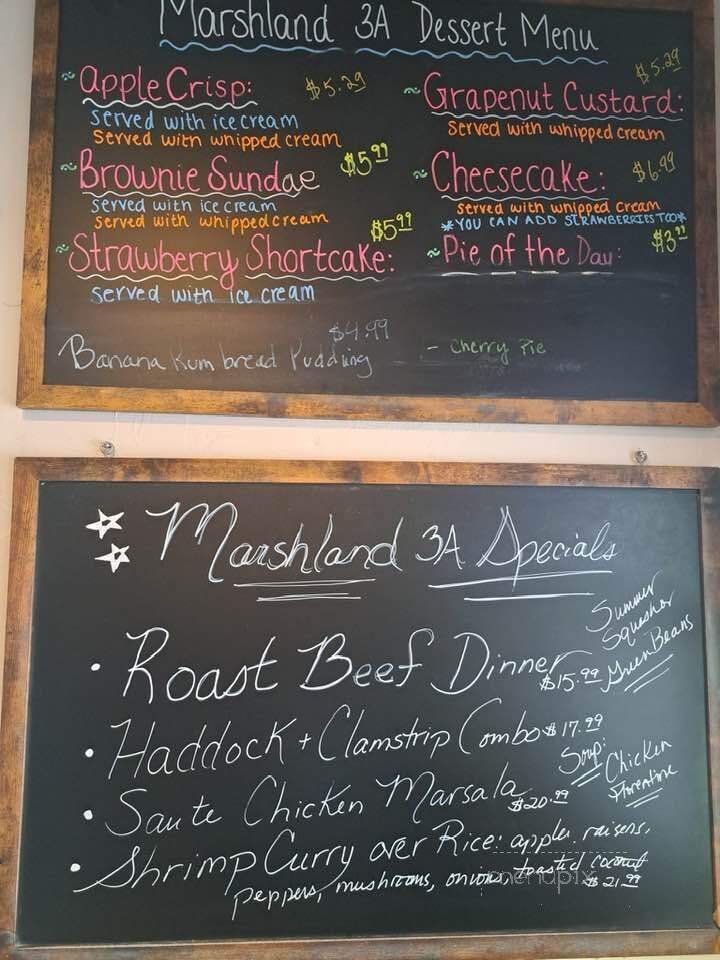 Marshland 3A Dessert Menu
~ Apple Crisp: $5.29
Served with ice cream
Served with whipped cream
~ Brownie Sundae $5.99
Served with ice cream
Served with whipped cream
~ Strawberry Shortcake: $5.99
Served with ice cream
$4.99
Banana Rum bread Pudding
~ Grapenut Custard: $5.29
Served with whipped cream
~ Cheesecake: $6.49
Served with whipped cream
*YOU CAN ADD STRAWBERRIES TOO*
~ Pie of the Day: $3.99
- Cherry Pie
Marshland 3A Specials
Summer
Squash or
Green Beans
• Roast Beef Dinner $15.99
• Haddock + Clamstrip Combo $17.99
Soup: Chicken
Florentine
• Saute Chicken Marsala $20.99
• Shrimp Curry over Rice: apples, raisens,
peppers, mushrooms, onions, toasted coconut
$21.99
menupix